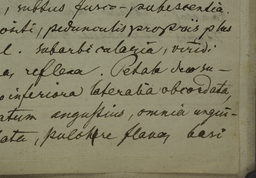 , subtus fusco-pubescentia.
pedunculis propriis plus
l. suborbicularia, viridi
a, reflexa. Petala duo su-
inferiora lateralia obcordata,
atum angustius, omnia ungui-
lata, pulchre flava, basi